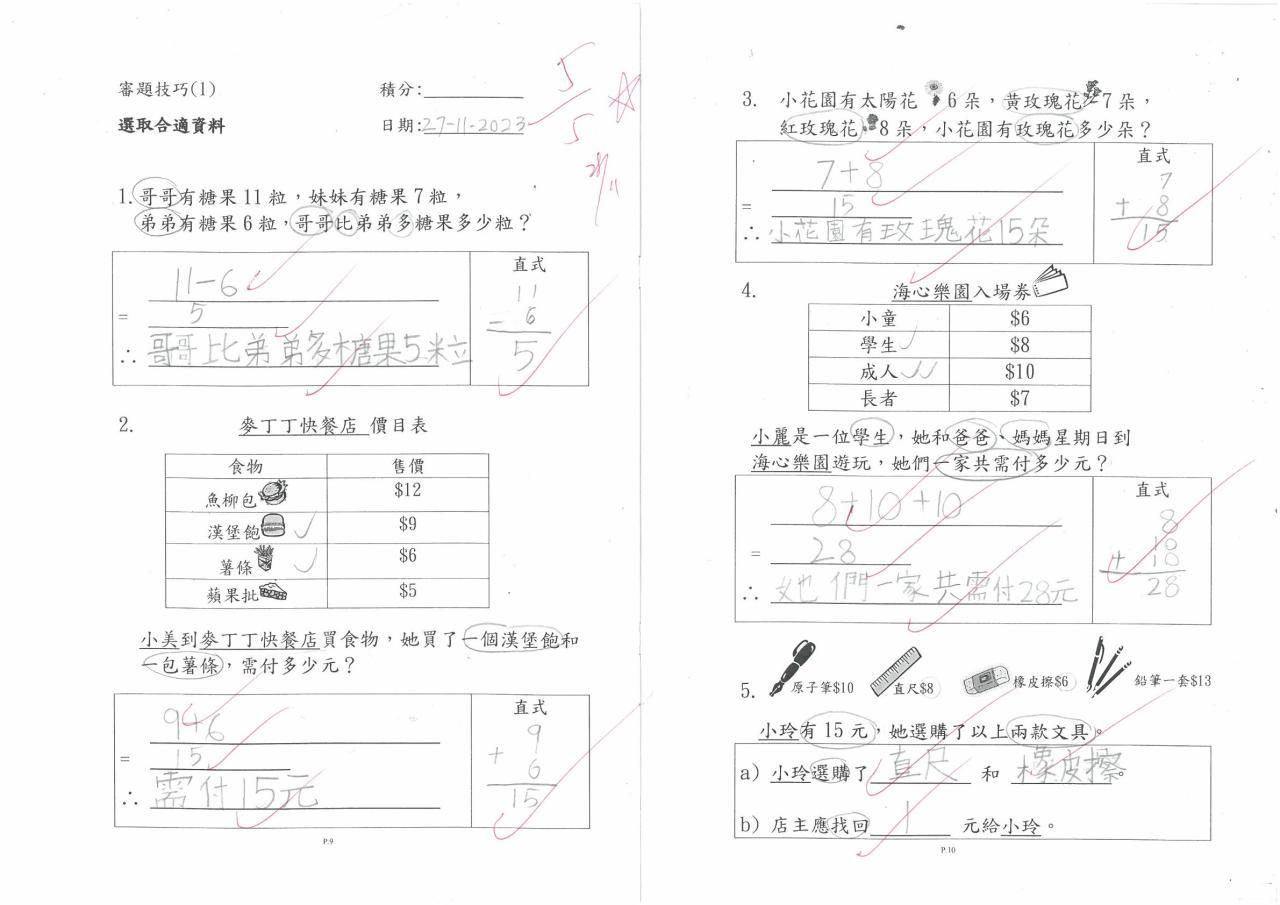 審題技巧(1) 積分:
5
5
選取合適資料 日期:27-11-2023
1.哥哥有糖果11粒，妹妹有糖果7粒，
弟弟有糖果6粒，哥哥比弟弟多糖果多少粒？
11-6
= 5
∴ 哥哥比弟弟多糖果5粒
直式
11
- 6
5
2. 麥丁丁快餐店 價目表
食物 售價
魚柳包 $12
漢堡飽 $9
薯條 $6
蘋果批 $5
小美到麥丁丁快餐店買食物，她買了一個漢堡飽和
一包薯條，需付多少元？
9+6
= 15
∴ 需付15元
直式
9
+ 6
15
P.9
3. 小花園有太陽花 6朵，黃玫瑰花 7朵，
紅玫瑰花 8朵，小花園有玫瑰花多少朵？
7+8
= 15
∴ 小花園有玫瑰花15朵
直式
7
+ 8
15
4. 海心樂園入場券
小童 $6
學生 $8
成人 $10
長者 $7
小麗是一位學生，她和爸爸、媽媽星期日到
海心樂園遊玩，她們一家共需付多少元？
8+10+10
= 28
∴ 她們一家共需付28元
直式
8
10
+ 10
28
5. 原子筆$10 直尺$8 橡皮擦$6 鉛筆一套$13
小玲有15元，她選購了以上兩款文具。
a) 小玲選購了 直尺 和 橡皮擦。
b) 店主應找回 1 元給小玲。
P.10